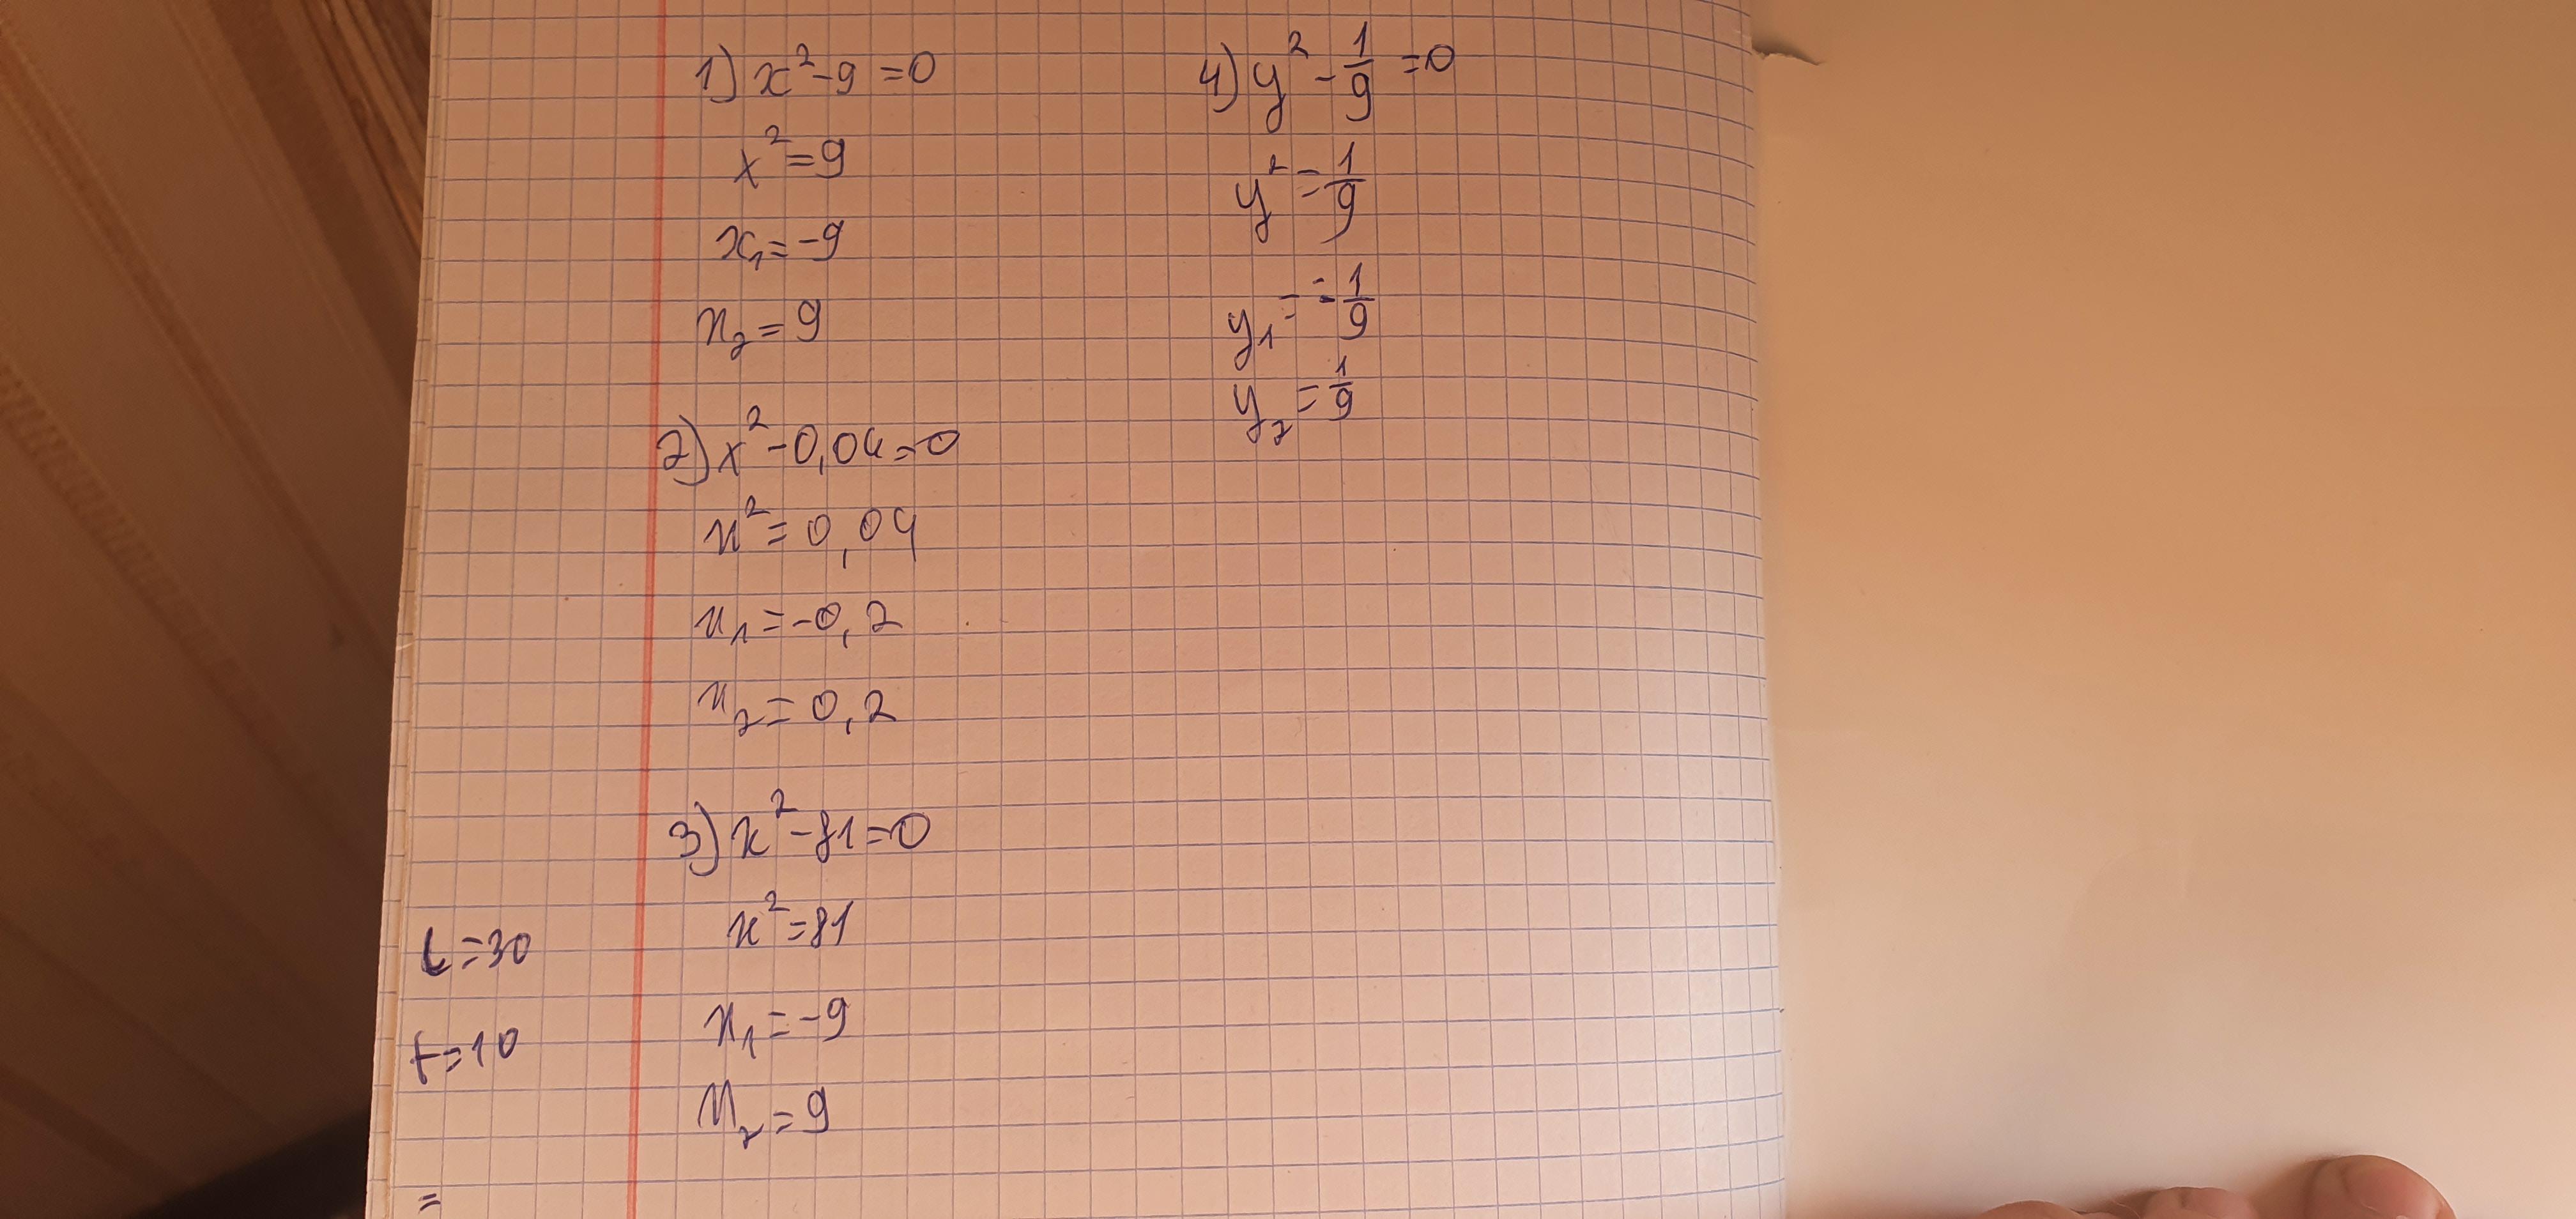 1) x²-9=0
x²=9
x₁=-9
x₂=9
2) x²-0,04=0
x²=0,04
x₁=-0,2
x₂=0,2
3) x²-81=0
x²=81
x₁=-9
x₂=9
t=30
t=10
=
4) y²-1/9=0
y²=1/9
y₁=-1/9
y₂=1/9